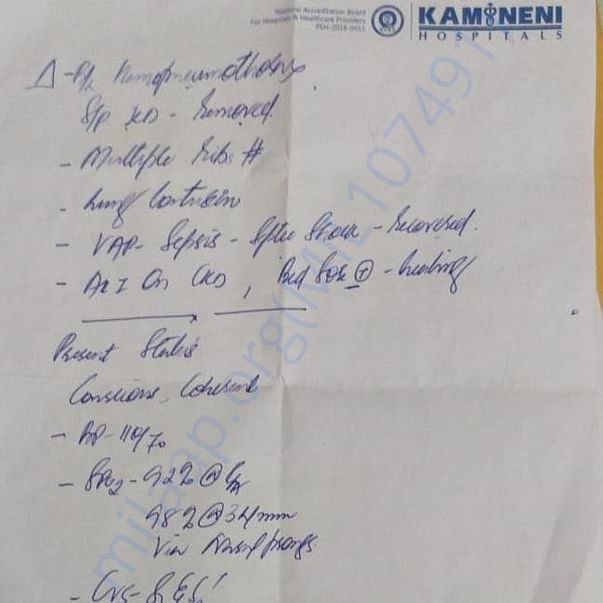 National Accreditation Board
For Hospitals & Healthcare Providers
PEH-2018-0451
KAMINENI
HOSPITALS
Δ - B/L Hemopneumothorax
S/p ICD - Removed.
- Multiple Ribs #
- Lung Contusion
- VAP - Sepsis - Septic Shock - Recovered.
- AKI on CKD, Bed Sore ⊕ - healing
Present Status
Conscious, Coherent
- BP - 110/70
- SPO2 - 92% @ RA
98% @ 3L/min
Via Nasal prongs.
- CVS - S1 S2
milaap.org(MIL107491